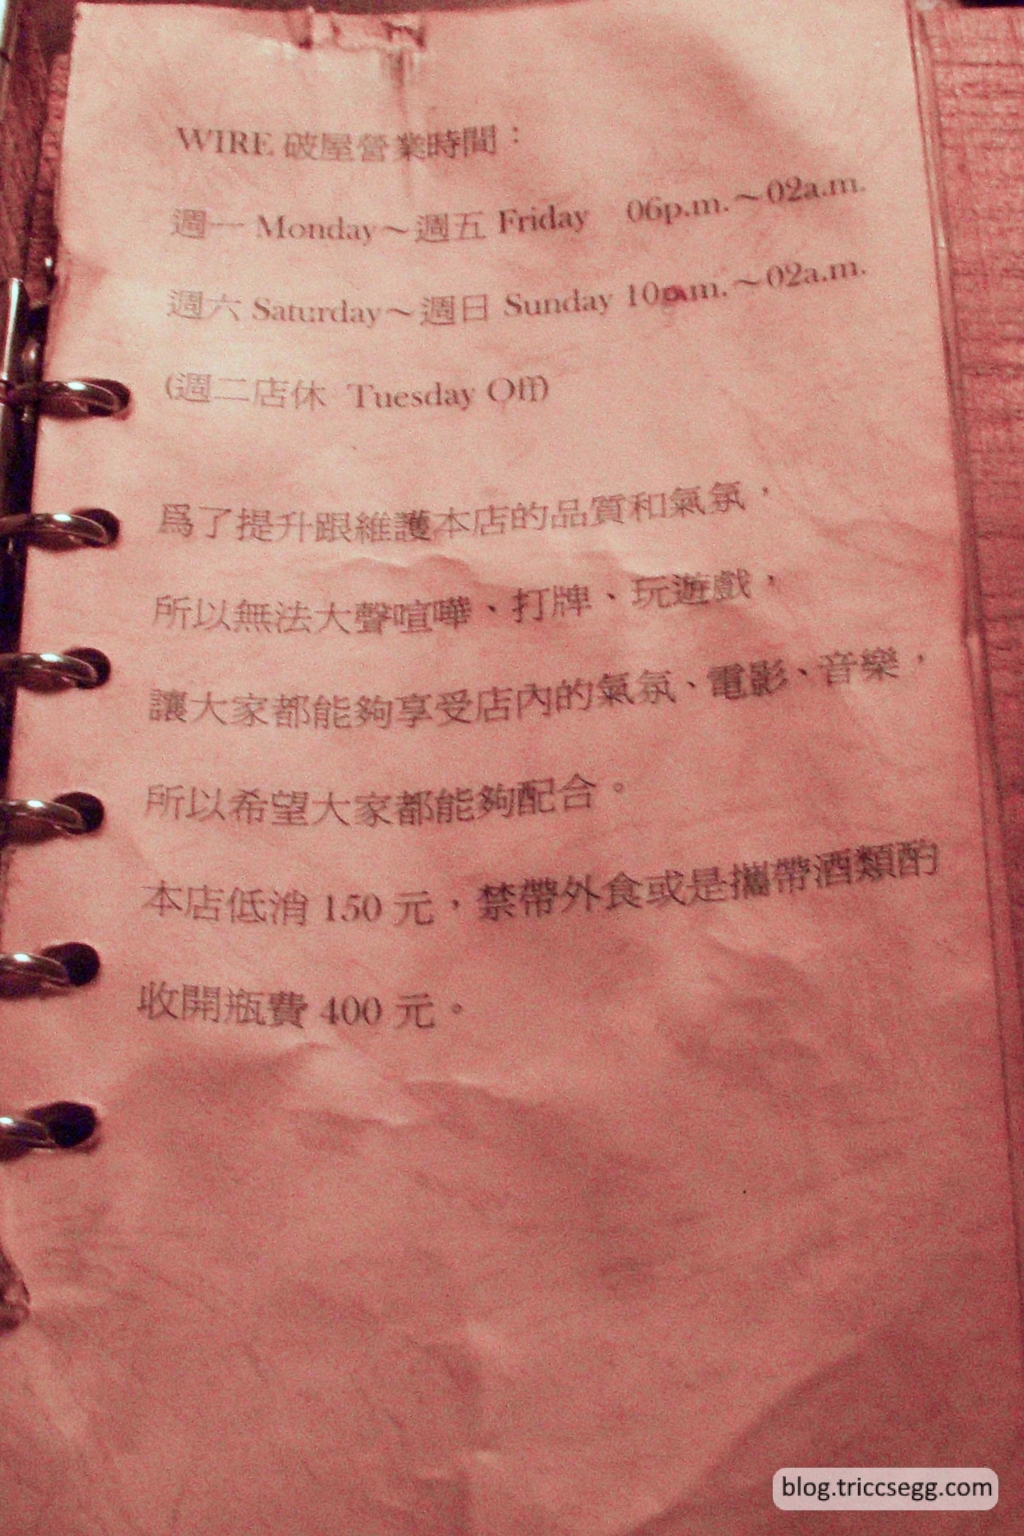 WIRE 破屋營業時間：
週一 Monday～週五 Friday 06p.m.～02a.m.
週六 Saturday～週日 Sunday 10p.m.～02a.m.
(週二店休 Tuesday Off)
爲了提升跟維護本店的品質和氣氛，
所以無法大聲喧嘩、打牌、玩遊戲，
讓大家都能夠享受店內的氣氛、電影、音樂，
所以希望大家都能夠配合。
本店低消 150 元，禁帶外食或是攜帶酒類酌
收開瓶費 400 元。
blog.triccsegg.com